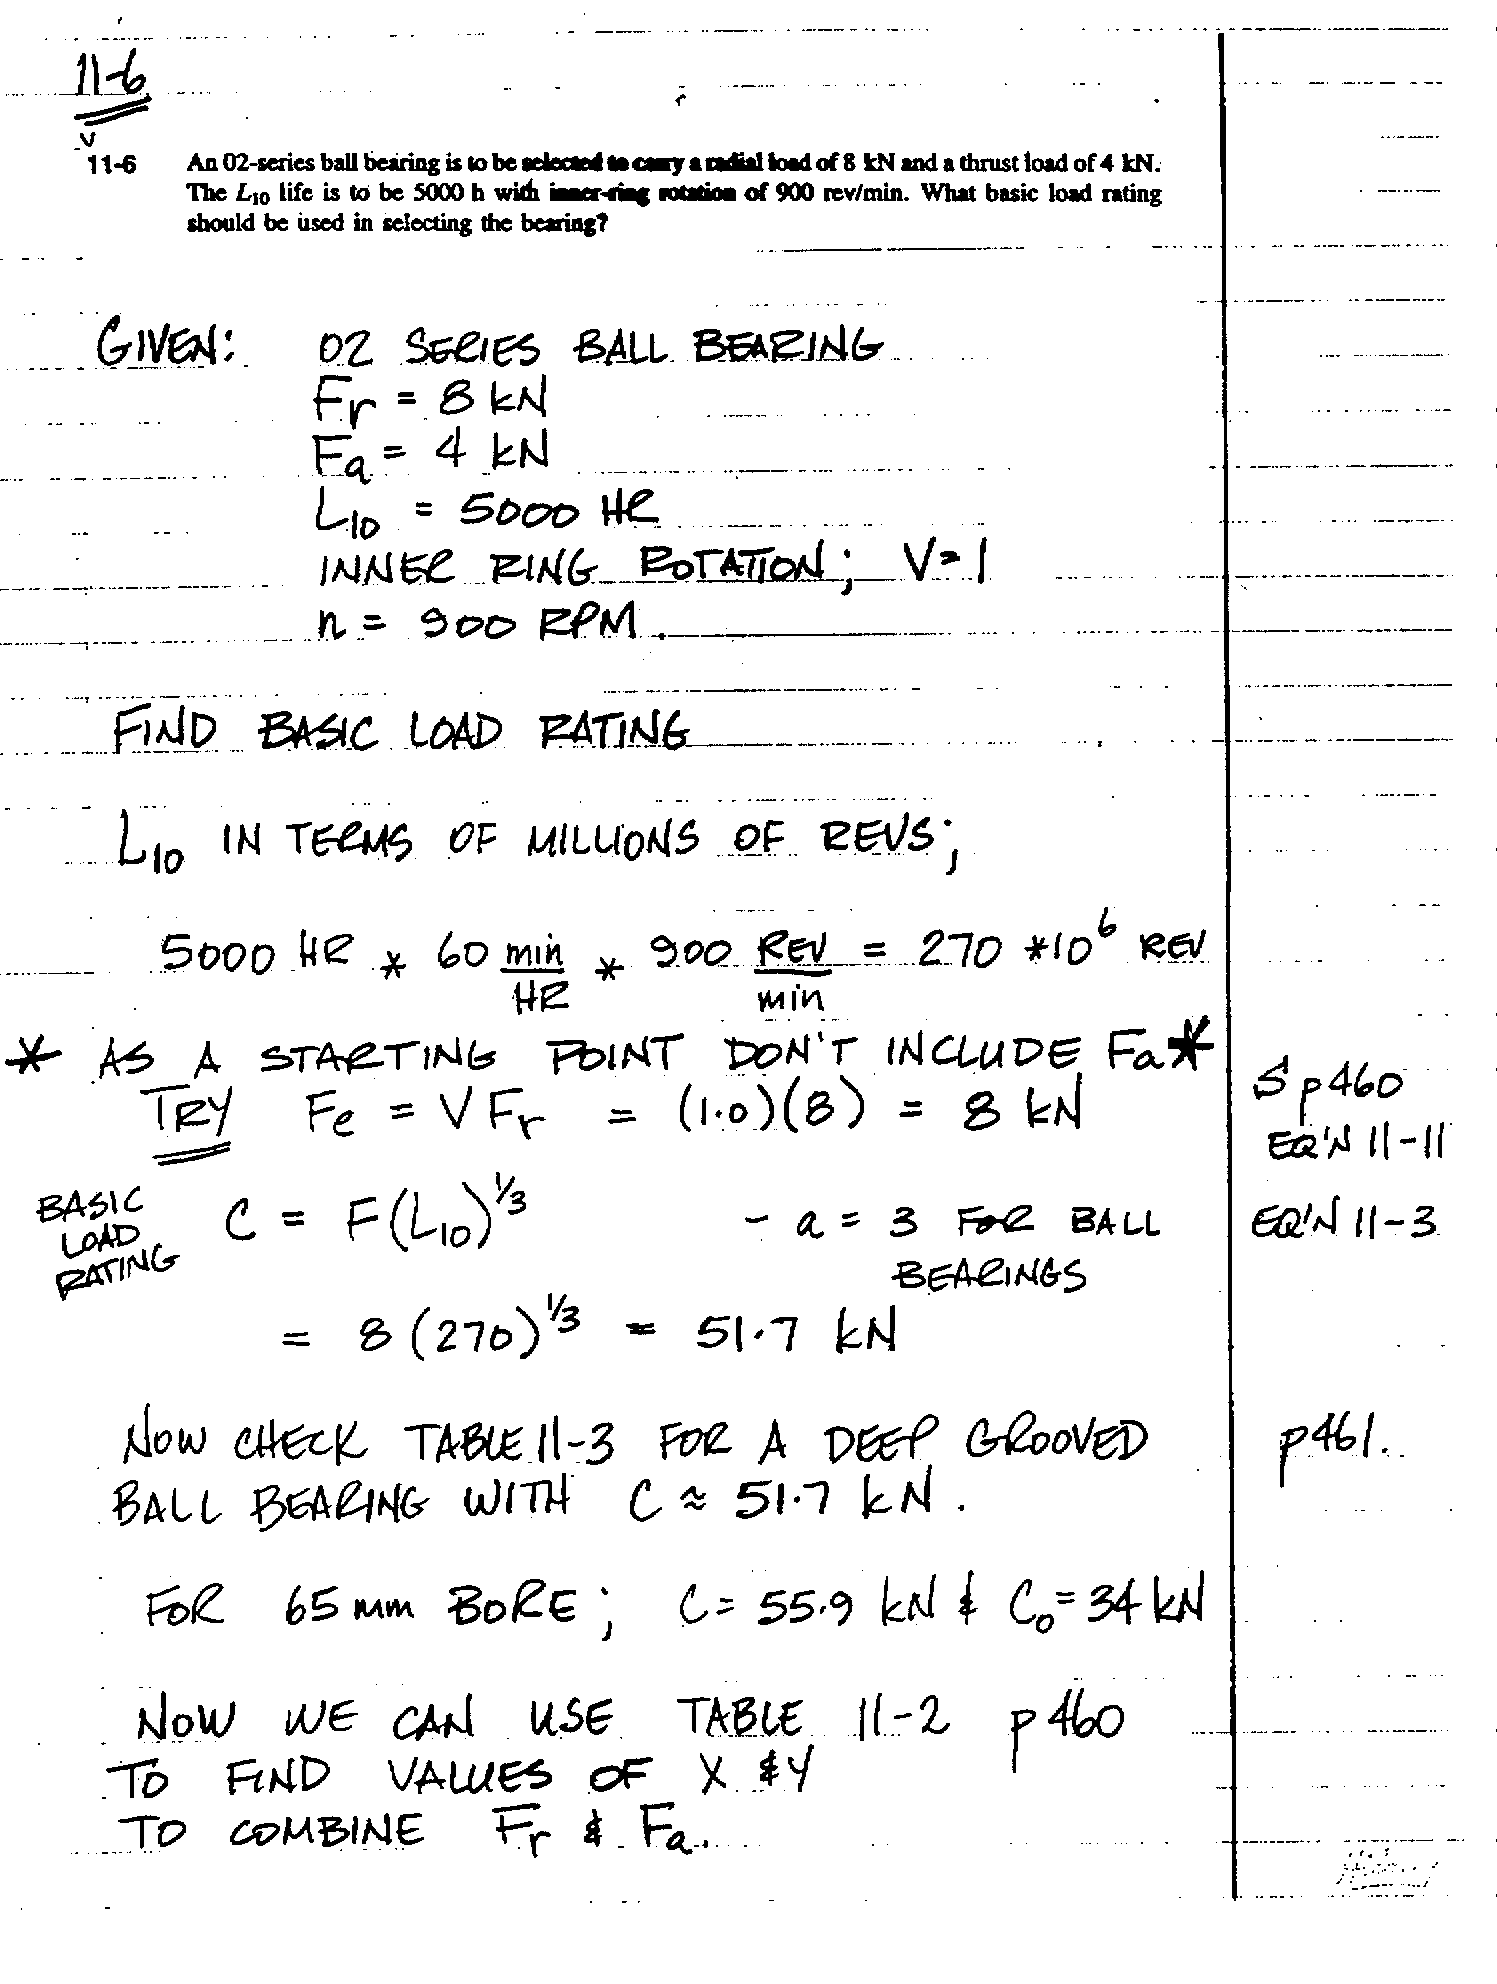 11-6
11-6 An 02-series ball bearing is to be selected to carry a radial load of 8 kN and a thrust load of 4 kN.
The L10 life is to be 5000 h with inner-ring rotation of 900 rev/min. What basic load rating
should be used in selecting the bearing?
GIVEN: 02 SERIES BALL BEARING
Fr = 8 kN
Fa = 4 kN
L10 = 5000 HR
INNER RING ROTATION; V=1
n = 900 RPM.
FIND BASIC LOAD RATING
L10 IN TERMS OF MILLIONS OF REVS;
5000 HR * 60 min/HR * 900 REV/min = 270 *10^6 REV
* AS A STARTING POINT DON'T INCLUDE Fa*
TRY Fe = V Fr = (1.0)(8) = 8 kN
S p460
EQ'N 11-11
BASIC LOAD RATING C = F(L10)^1/3 - a = 3 FOR BALL BEARINGS EQ'N 11-3
= 8 (270)^1/3 = 51.7 kN
NOW CHECK TABLE 11-3 FOR A DEEP GROOVED p461.
BALL BEARING WITH C ≈ 51.7 kN.
FOR 65 mm BORE; C = 55.9 kN & Co = 34 kN
NOW WE CAN USE TABLE 11-2 p460
TO FIND VALUES OF X & Y
TO COMBINE Fr & Fa.